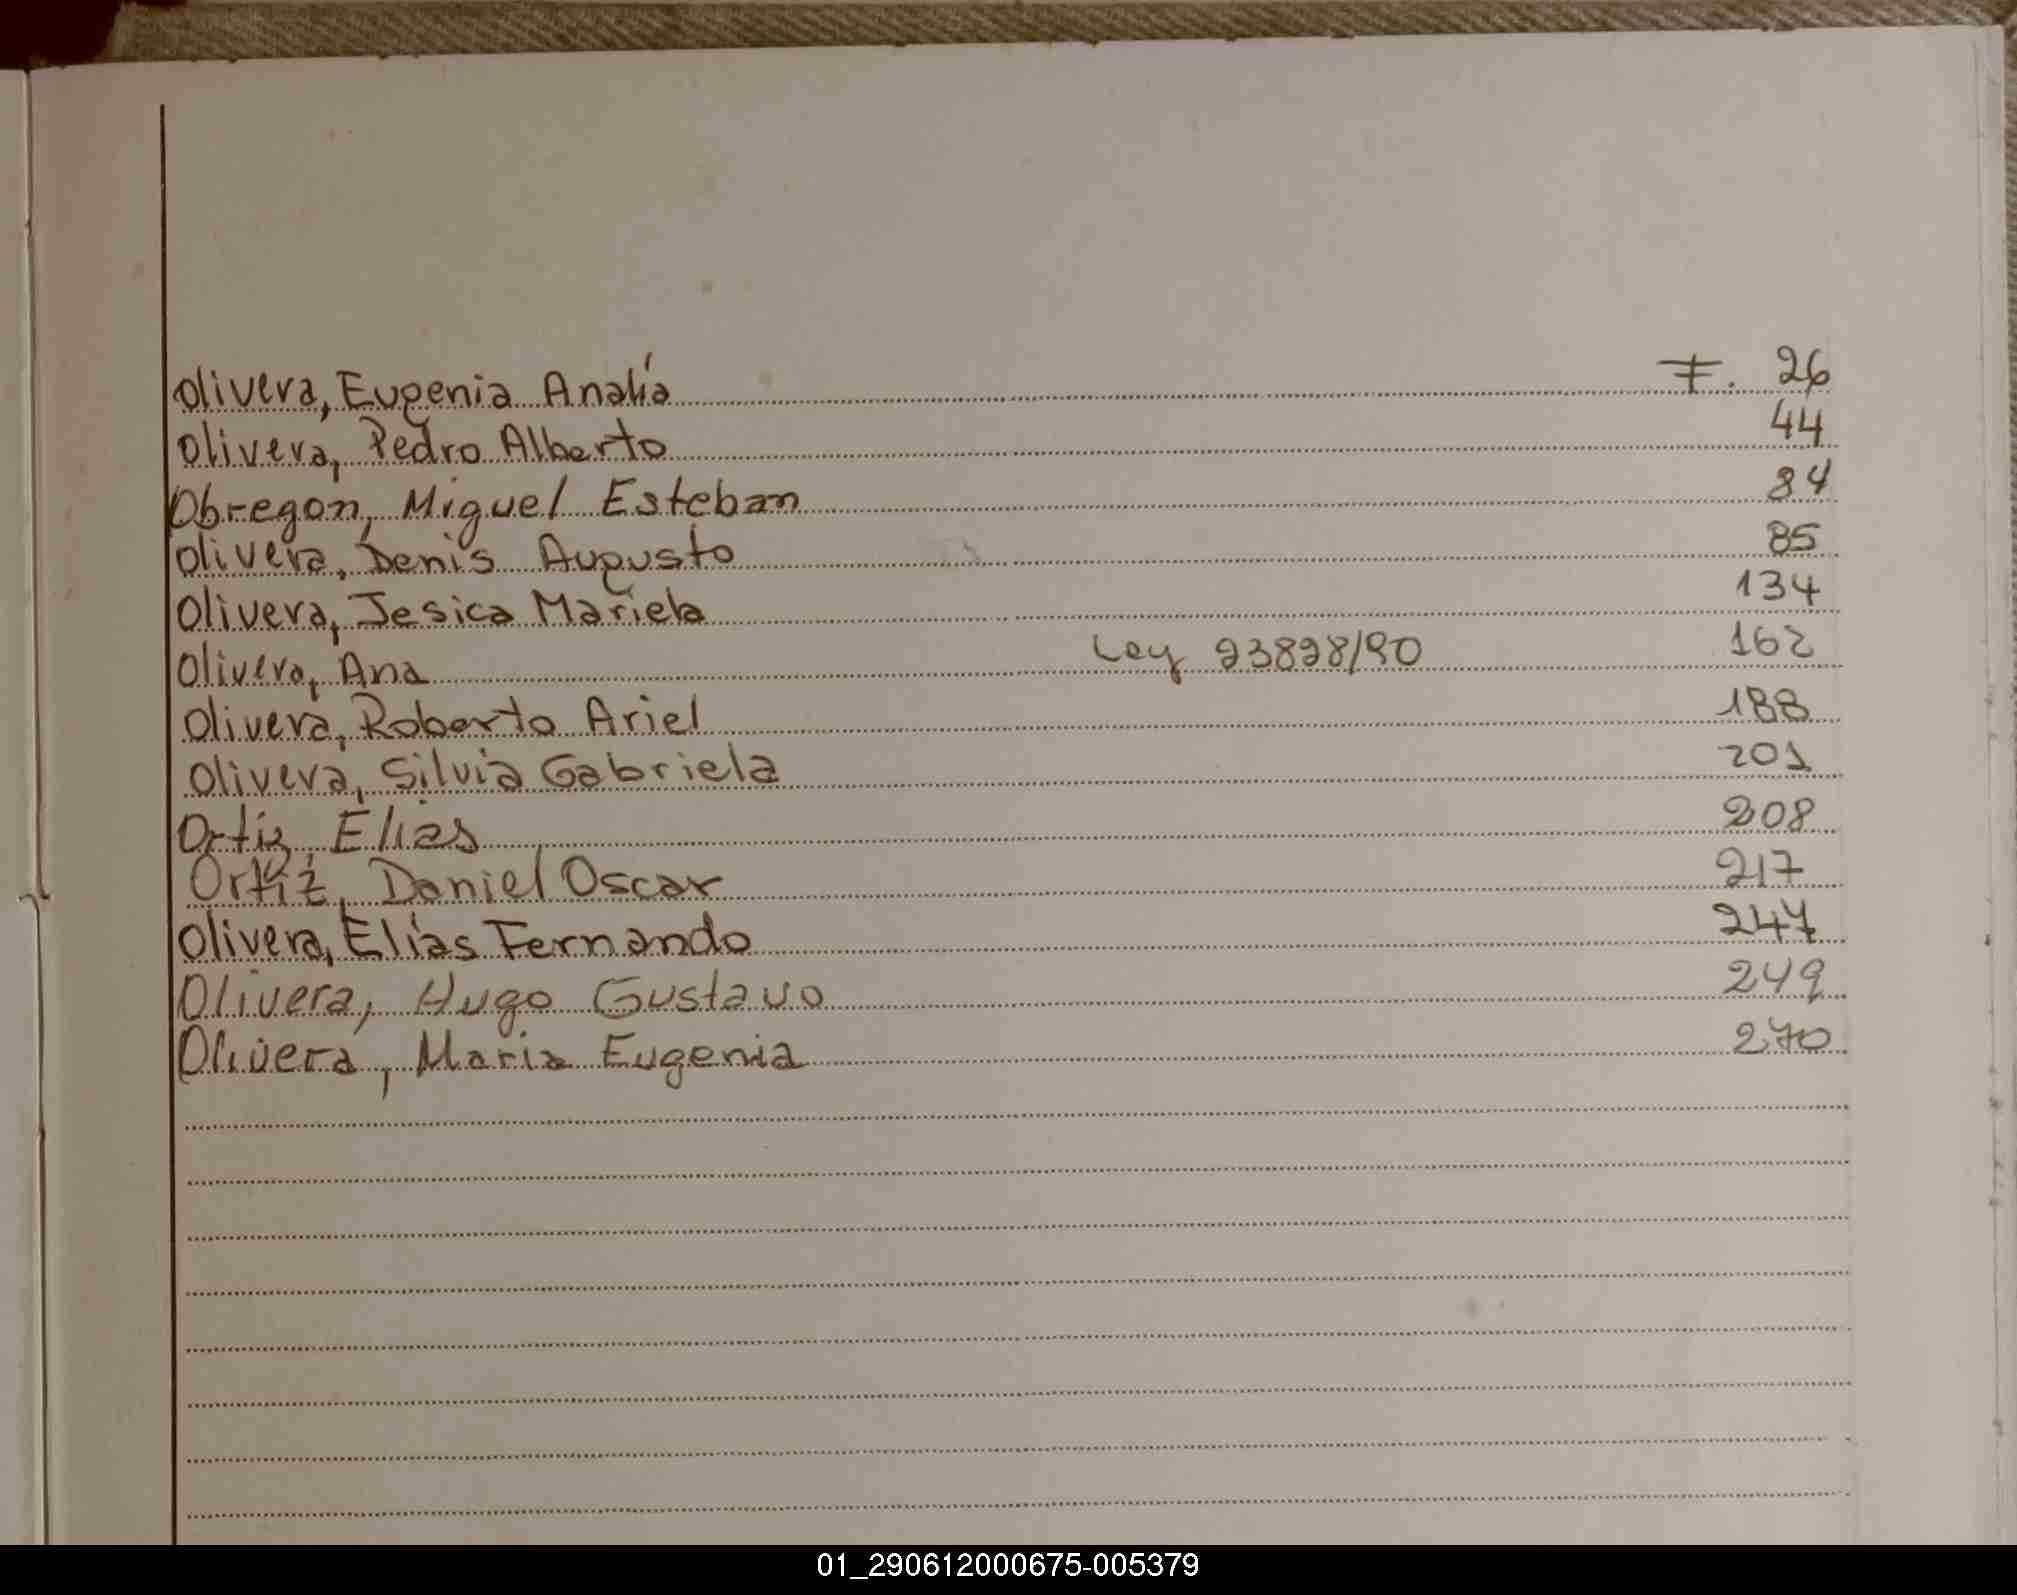 Olivera, Eugenia Analía F. 26
Olivera, Pedro Alberto 44
Obregon, Miguel Esteban 84
Olivera, Denis Augusto 85
Olivera, Jesica Mariela 134
Olivera, Ana Ley 23828/90 162
Olivera, Roberto Ariel 188
Olivera, Silvia Gabriela 201
Ortiz, Elias 208
Ortiz, Daniel Oscar 217
Olivera, Elías Fernando 247
Olivera, Hugo Gustavo 249
Olivera, Maria Eugenia 270
01_290612000675-005379